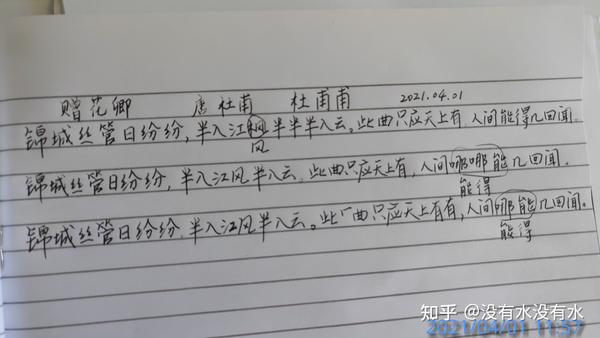 赠花卿 唐杜甫 杜甫甫 2021.04.01
锦城丝管日纷纷，半入江枫半半半入云。此曲只应天上有，人间能得几回闻
风
锦城丝管日纷纷，半入江风半入云，此曲只应天上有，人间哪哪能几回闻。
能得
锦城丝管日纷纷，半入江风半入云。此曲只应天上有有，人间哪能几回闻。
能得
知乎 @没有水没有水
2021/04/01 11:57